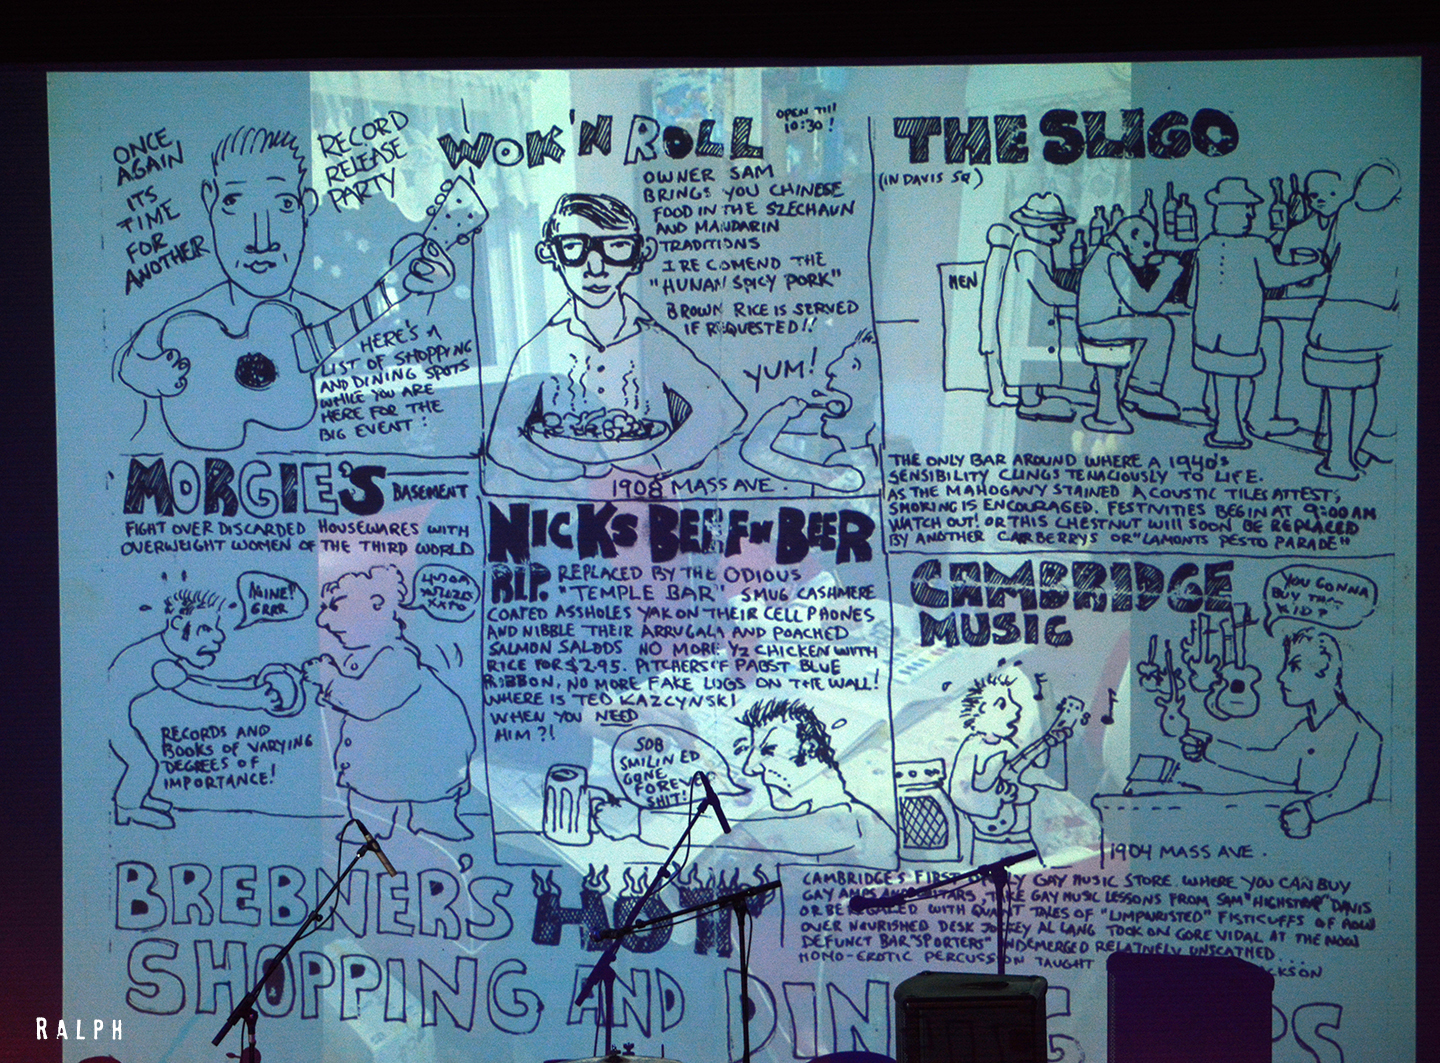 ONCE
AGAIN
ITS
TIME
FOR
ANOTHER
RECORD
RELEASE
PARTY
HERE'S A
LIST OF SHOPPING
AND DINING SPOTS
WHILE YOU ARE
HERE FOR THE
BIG EVENT:
WOK'N ROLL
OPEN TILL
10:30!
OWNER SAM
BRINGS YOU CHINESE
FOOD IN THE SZECHAUN
AND MANDARIN
TRADITIONS
I RECOMEND THE
"HUNAN SPICY PORK"
BROWN RICE IS SERVED
IF REQUESTED!!
YUM!
1908 MASS AVE.
THE SLIGO
(IN DAVIS SQ)
MEN
THE ONLY BAR AROUND WHERE A 1940's
SENSIBILITY CLINGS TENACIOUSLY TO LIFE.
AS THE MAHOGANY STAINED ACOUSTIC TILES ATTEST,
SMOKING IS ENCOURAGED. FESTIVITIES BEGIN AT 9:00AM
WATCH OUT! OR THIS CHESTNUT WILL SOON BE REPLACED
BY ANOTHER CARBERRYS OR "LAMONTS PESTO PARADE"
MORGIE'S BASEMENT
FIGHT OVER DISCARDED HOUSEWARES WITH
OVERWEIGHT WOMEN OF THE THIRD WORLD
MINE!!
GRRR
RECORDS AND
BOOKS OF VARYING
DEGREES OF
IMPORTANCE!
NICKS BEEF N BEER
RIP. REPLACED BY THE ODIOUS
"TEMPLE BAR" SMUG CASHMERE
COATED ASSHOLES YAK ON THEIR CELL PHONES
AND NIBBLE THEIR ARRUGALA AND POACHED
SALMON SALADS NO MORE 1/2 CHICKEN WITH
RICE FOR $2.95. PITCHERS OF PABST BLUE
RIBBON, NO MORE FAKE LOGS ON THE WALL!
WHERE IS TED KAZCYNSKI
WHEN YOU NEED
HIM?!
SOB
SMILIN ED
GONE
FOREV
SHIT!
CAMBRIDGE
MUSIC
YOU GONNA
BUY THAT
KID?
1904 MASS AVE.
CAMBRIDGE'S FIRST ONLY GAY MUSIC STORE. WHERE YOU CAN BUY
GAY AMPS AND GUITARS, TAKE GAY MUSIC LESSONS FROM SAM "HIGHSTRAP" DAVIS
OR BE REGALED WITH QUAINT TALES OF "LIMPWRISTED" FISTICUFFS OF HOW
OVER NOURISHED DESK JOCKEY AL LANG TOOK ON GORE VIDAL AT THE NOW
DEFUNCT BAR "SPORTERS" AND EMERGED RELATIVELY UNSCATHED...
HOMO-EROTIC PERCUSSION TAUGHT
CKSON
BREBNER'S HOT
SHOPPING AND DINING
PS
RALPH